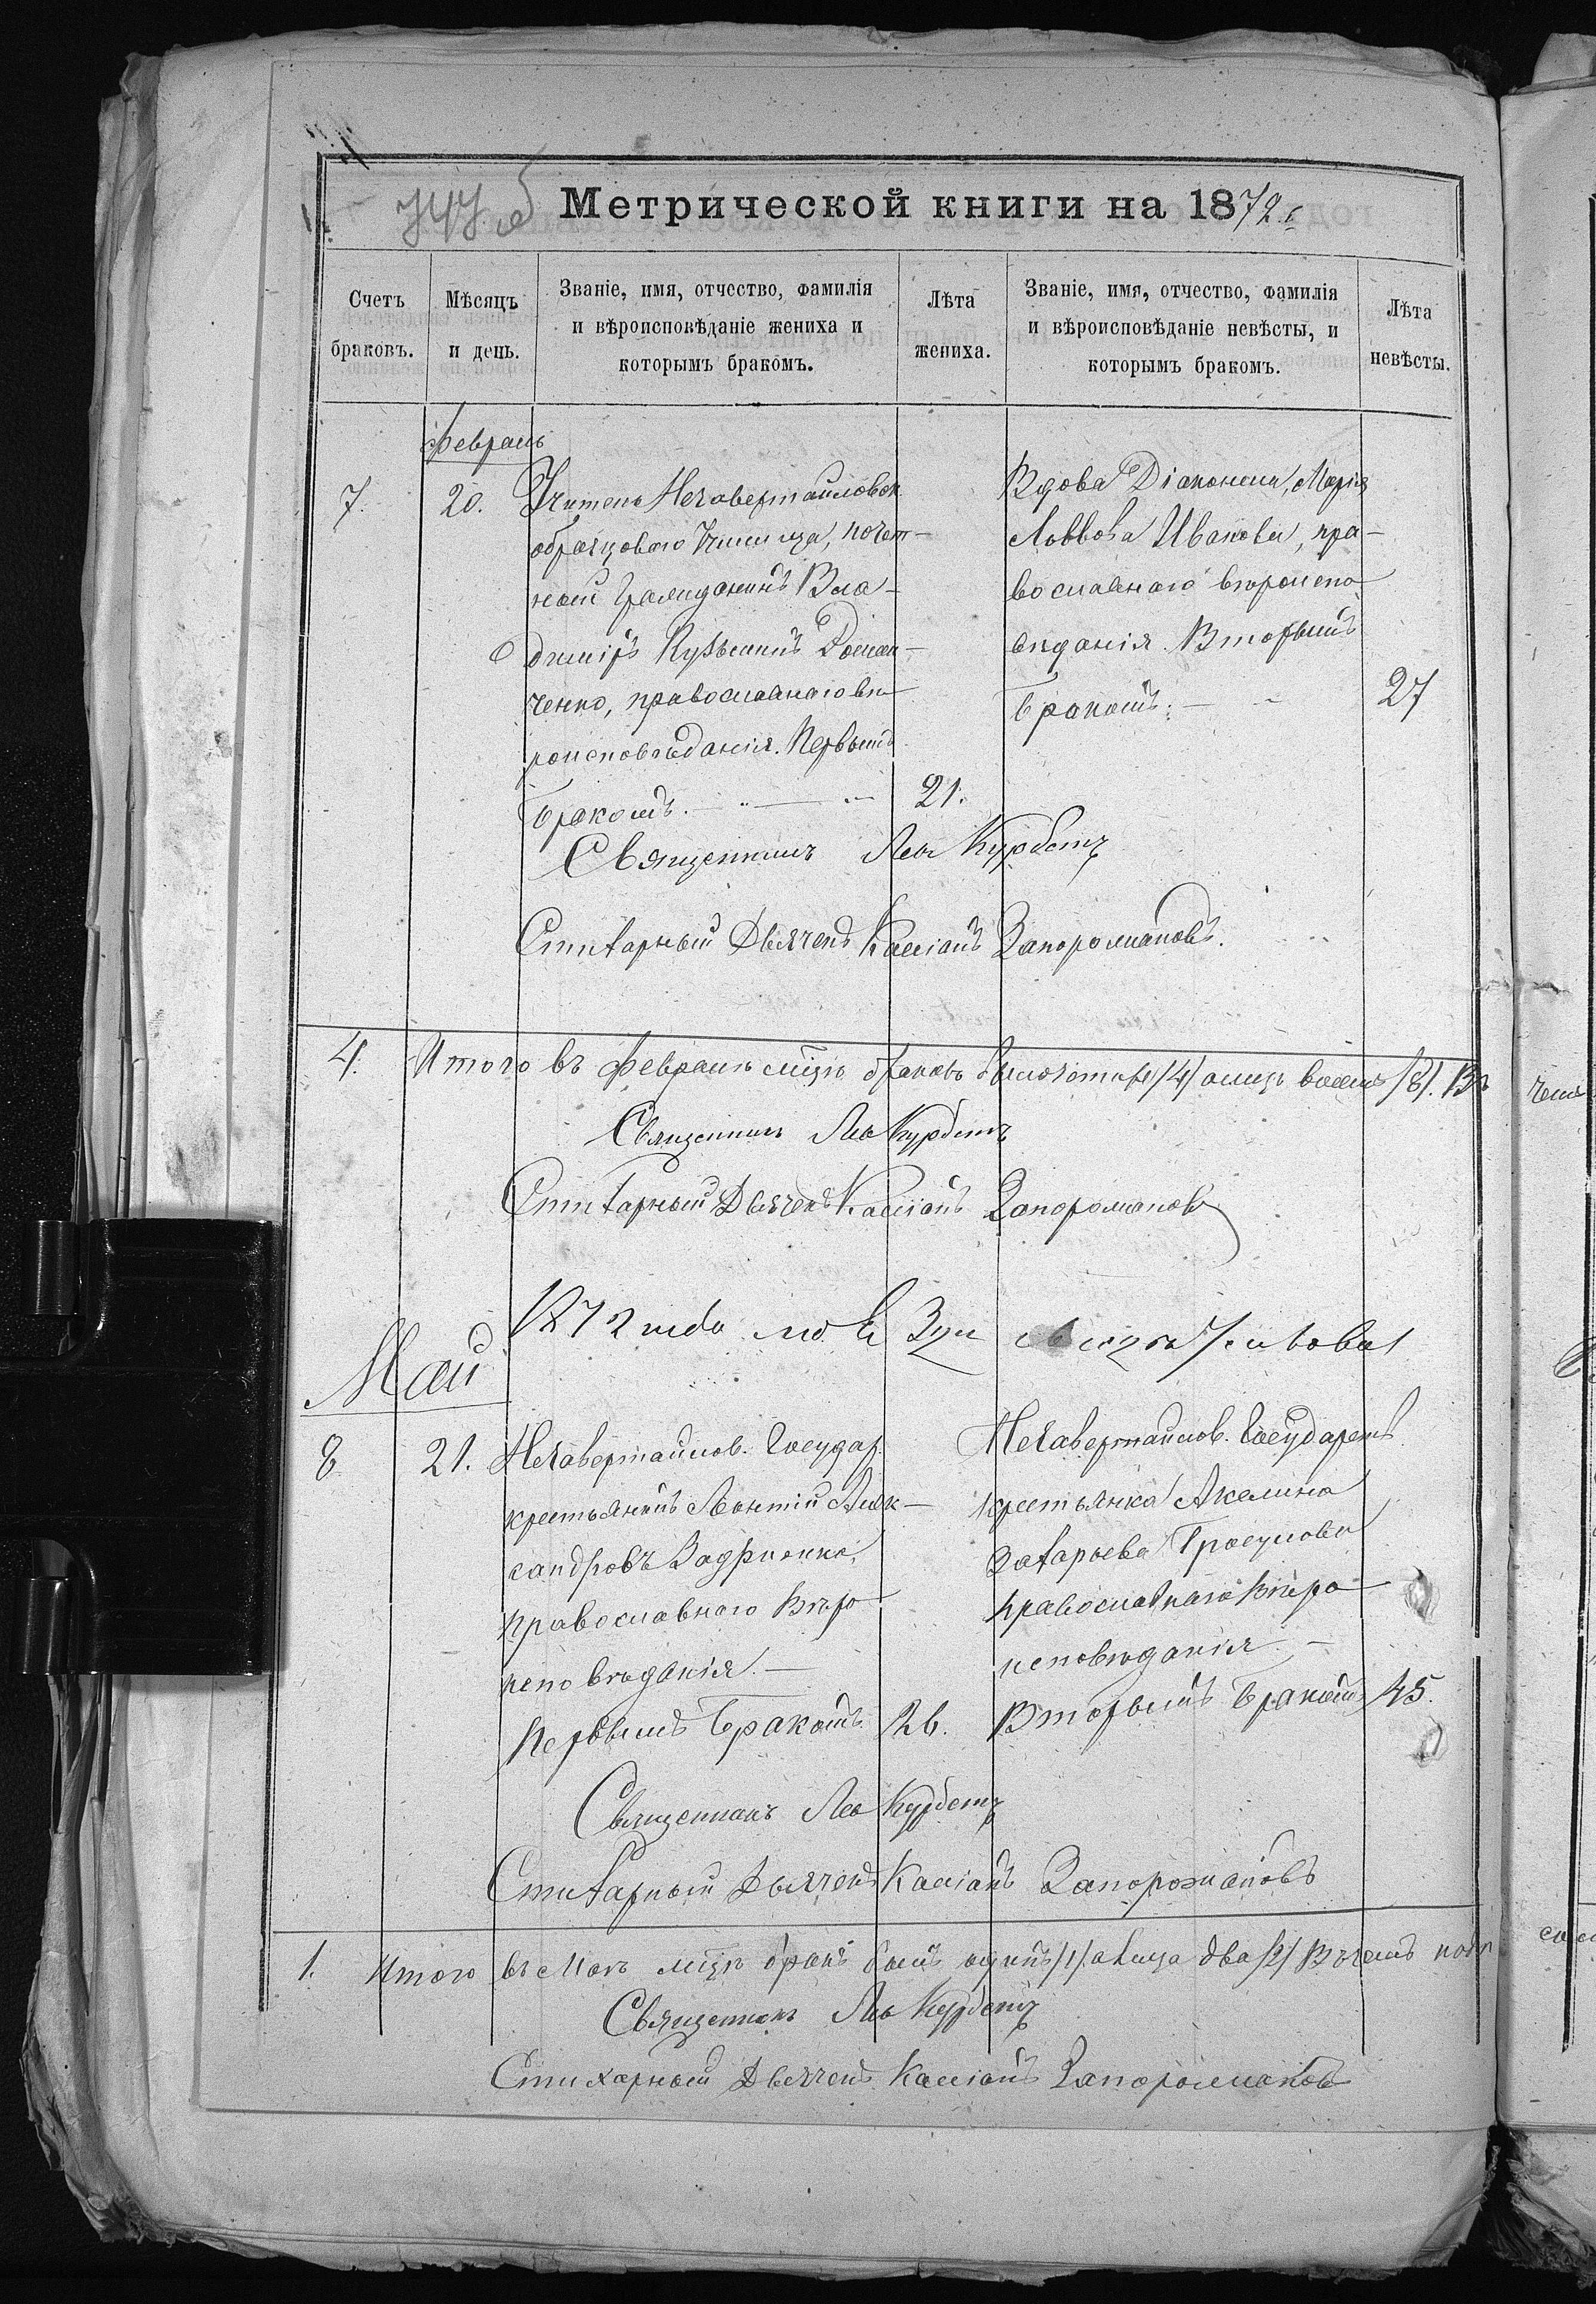 747 об
Метрической книги на 1872 г.
Счетъ браковъ.
Мѣсяцъ и день.
Званіе, имя, отчество, фамилія
и вѣроисповѣданіе жениха и
которымъ бракомъ.
Лѣта жениха.
Званіе, имя, отчество, фамилія
и вѣроисповѣданіе невѣсты, и
которымъ бракомъ.
Лѣта невѣсты.
Февраль
7. 20.
Учитель Незавертайловск.
образцоваго Училища, почет-
ный Гражданинъ Вла-
диміръ Кузьминъ Доман-
ченко, православнаго вѣ-
роисповѣданія. Первымъ
бракомъ. 21.
Вдова Діаконеса, Марія
Львова Иванова, пра-
вославнаго вѣроиспо
вѣданія. Вторымъ
бракомъ. 27
Священникъ Лев Курбетъ
Стихарный Дьячекъ Кассіанъ Запорожановъ.
4. Итого въ Февралѣ мцѣ браковъ было четыре /4/ а лицъ восемь /8/. Въ
Священникъ Лев Курбетъ
Стихарный Дьячекъ Кассіанъ Запорожановъ
1872 года
Май
8. 21.
Незавертайлов. Государ.
крестьянинъ Леонтій Алек-
сандровъ Задріенко,
православнаго Вѣро
исповѣданія. —
Первымъ бракомъ 26.
Незавертайлов. Государств.
крестьянка Акелина
Захарьева
православнаго вѣро
исповѣданія. —
Вторымъ бракомъ 45.
Священникъ Лев Курбетъ
Стихарный Дьячекъ Кассіанъ Запорожановъ
1. Итого въ Маѣ мцѣ бракъ былъ одинъ /1/. а лица два /2/ Въ чемъ
Священникъ Лев Курбетъ
Стихарный Дьячекъ Кассіанъ Запорожановъ